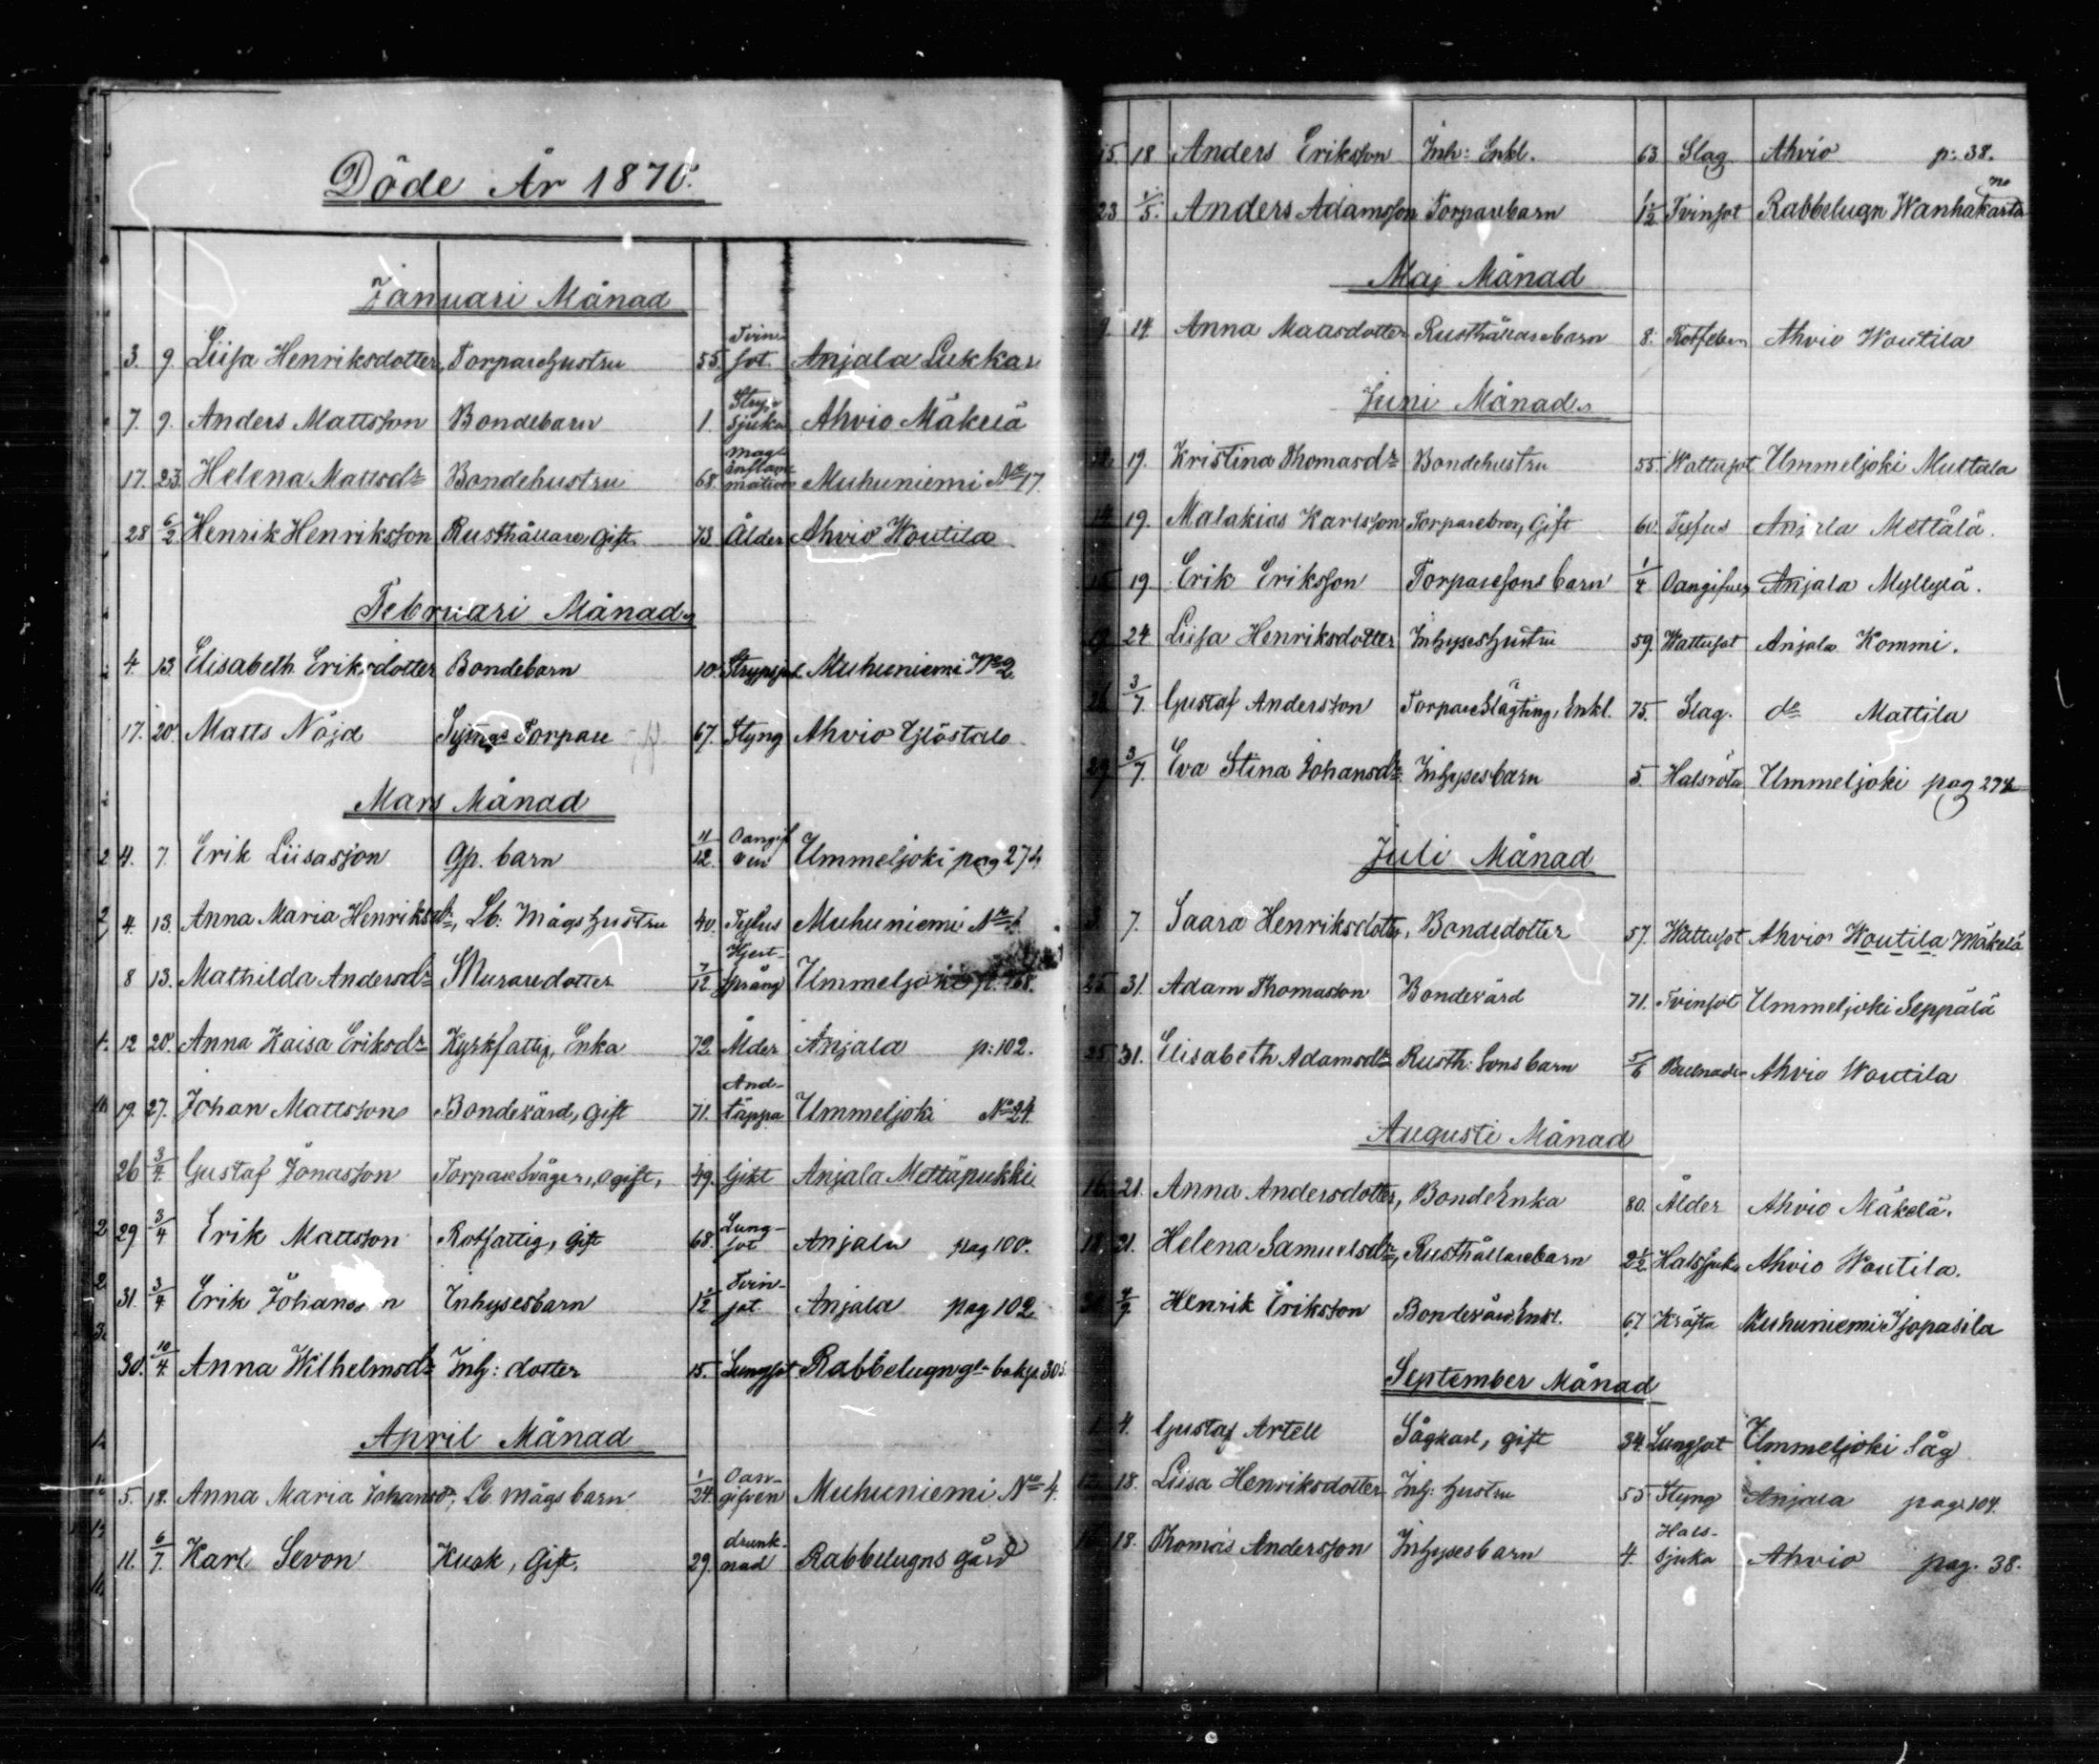 Döde År 1870.
Januari Månad
3. 9. Liisa Henriksdotter, Torparehustru 55. Tvinsot. Anjala Lukkar
7. 9. Anders Mattsson Bondebarn 1. Strypsjuka Ahvio Mäkelä
17. 23. Helena Mattsdr Bondehustru 68. Maginflammation Muhuniemi No 17.
28 6/2 Henrik Henriksson Rusthållare, Gift. 73 Ålder Ahvio Woutila
Februari Månad
4. 13. Elisabeth Eriksdotter Bondebarn 10. Strypsjuk Muhuniemi No 2
17. 20. Matts Nöjd Torpare 67. Styng Ahvio Yjöstalo
Mars Månad
4. 7. Erik Liisasson Gp. barn 11/12. Oangifven Ummeljoki pag 274
4. 13. Anna Maria Henriksdr, Lb: Mågs hustru 40. Tyfus Muhuniemi No
8 13. Mathilda Andersdr Muraredotter 7/12 Hjertsprång Ummeljoki p. 168.
12 20. Anna Kaisa Eriksdr Kyrkfattig, Enka 72 Ålder Anjala p: 102.
19. 27. Johan Mattsson Bondevärd, Gift 71. Andtäppa Ummeljoki No 24.
26 3/4. Gustaf Jonasson Torpare Svåger, Ogift, 49. Gikt Anjala Mettäpukki
29 3/4 Erik Mattsson Rotfattig, Gift 68. Lungsot Anjala pag 100.
31. 3/4 Erik Johansson Inhysesbarn 1 1/2 Tvinsot Anjala pag 102
30. 10/4. Anna Wilhelmsdr Inh: dotter 15. Lungsot Rabbelugn gl bok p. 305.
April Månad
5. 18. Anna Maria Johansdr, Lb. mågs barn 1/24. Oangifven Muhuniemi No 4.
11. 6/7. Karl Sevon Kusk, Gift. 29. drunknad Rabbelugns gård
15 18 Anders Eriksson Inh: Enkl. 63 Slag Ahvio p: 38.
23 1/5. Anders Adamsson Torparebarn 1 1/2 Tvinsot Rabbelugn Wanhakartano
Maj Månad
9. 14. Anna Maasdotter Rusthållarebarn 8. Rotfeber Ahvio Woutila
Juni Månad
12. 19. Kristina Thomasdr Bondehustru 55. Wattusot Ummeljoki Muttala
14 19. Malakias Karlsson Torparebror, Gift 60. Tyfus Anjala Mettälä.
15 19. Erik Eriksson Torparesons barn 1/4 Oangifven Anjala Myllylä.
19 24 Liisa Henriksdotter Inhyseshustru 59. Wattusot Anjala Kommi.
26 3/7. Gustaf Andersson Torpare Slägting, Enkl. 75. Slag. do Mattila
29 3/7. Eva Stina Johansdr. Inhysesbarn 5. Halsröta Ummeljoki pag 274
Juli Månad
3. 7. Saara Henriksdotter, Bondedotter 57. Wattusot Ahvio Woutila Mäkelä
25 31. Adam Thomasson Bondevärd 71. Tvinsot Ummeljoki Seppälä
25 31. Elisabeth Adamsdr Rusth: Sons barn 5/6 Bulnader Ahvio Woutila
Augusti Månad
16. 21. Anna Andersdotter, Bonde Enka 80. Ålder Ahvio Mäkelä.
18. 21. Helena Samuelsdr, Rusthållarebarn 2 1/2. Halssjuka Ahvio Woutila.
4/9 Henrik Eriksson Bondevärd, Enkl. 67 Kräfta Muhuniemi Yjopasila
September Månad
1. 4. Gustaf Artell Sågkarl, gift 34. Lungsot Ummeljoki Såg
18. Liisa Henriksdotter Inh: hustru 55 Styng Anjala pag. 104.
18. Thomas Andersson Inhysesbarn 4. Halssjuka Ahvio pag. 38.